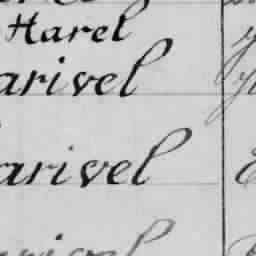 Harel
arivel
arivel